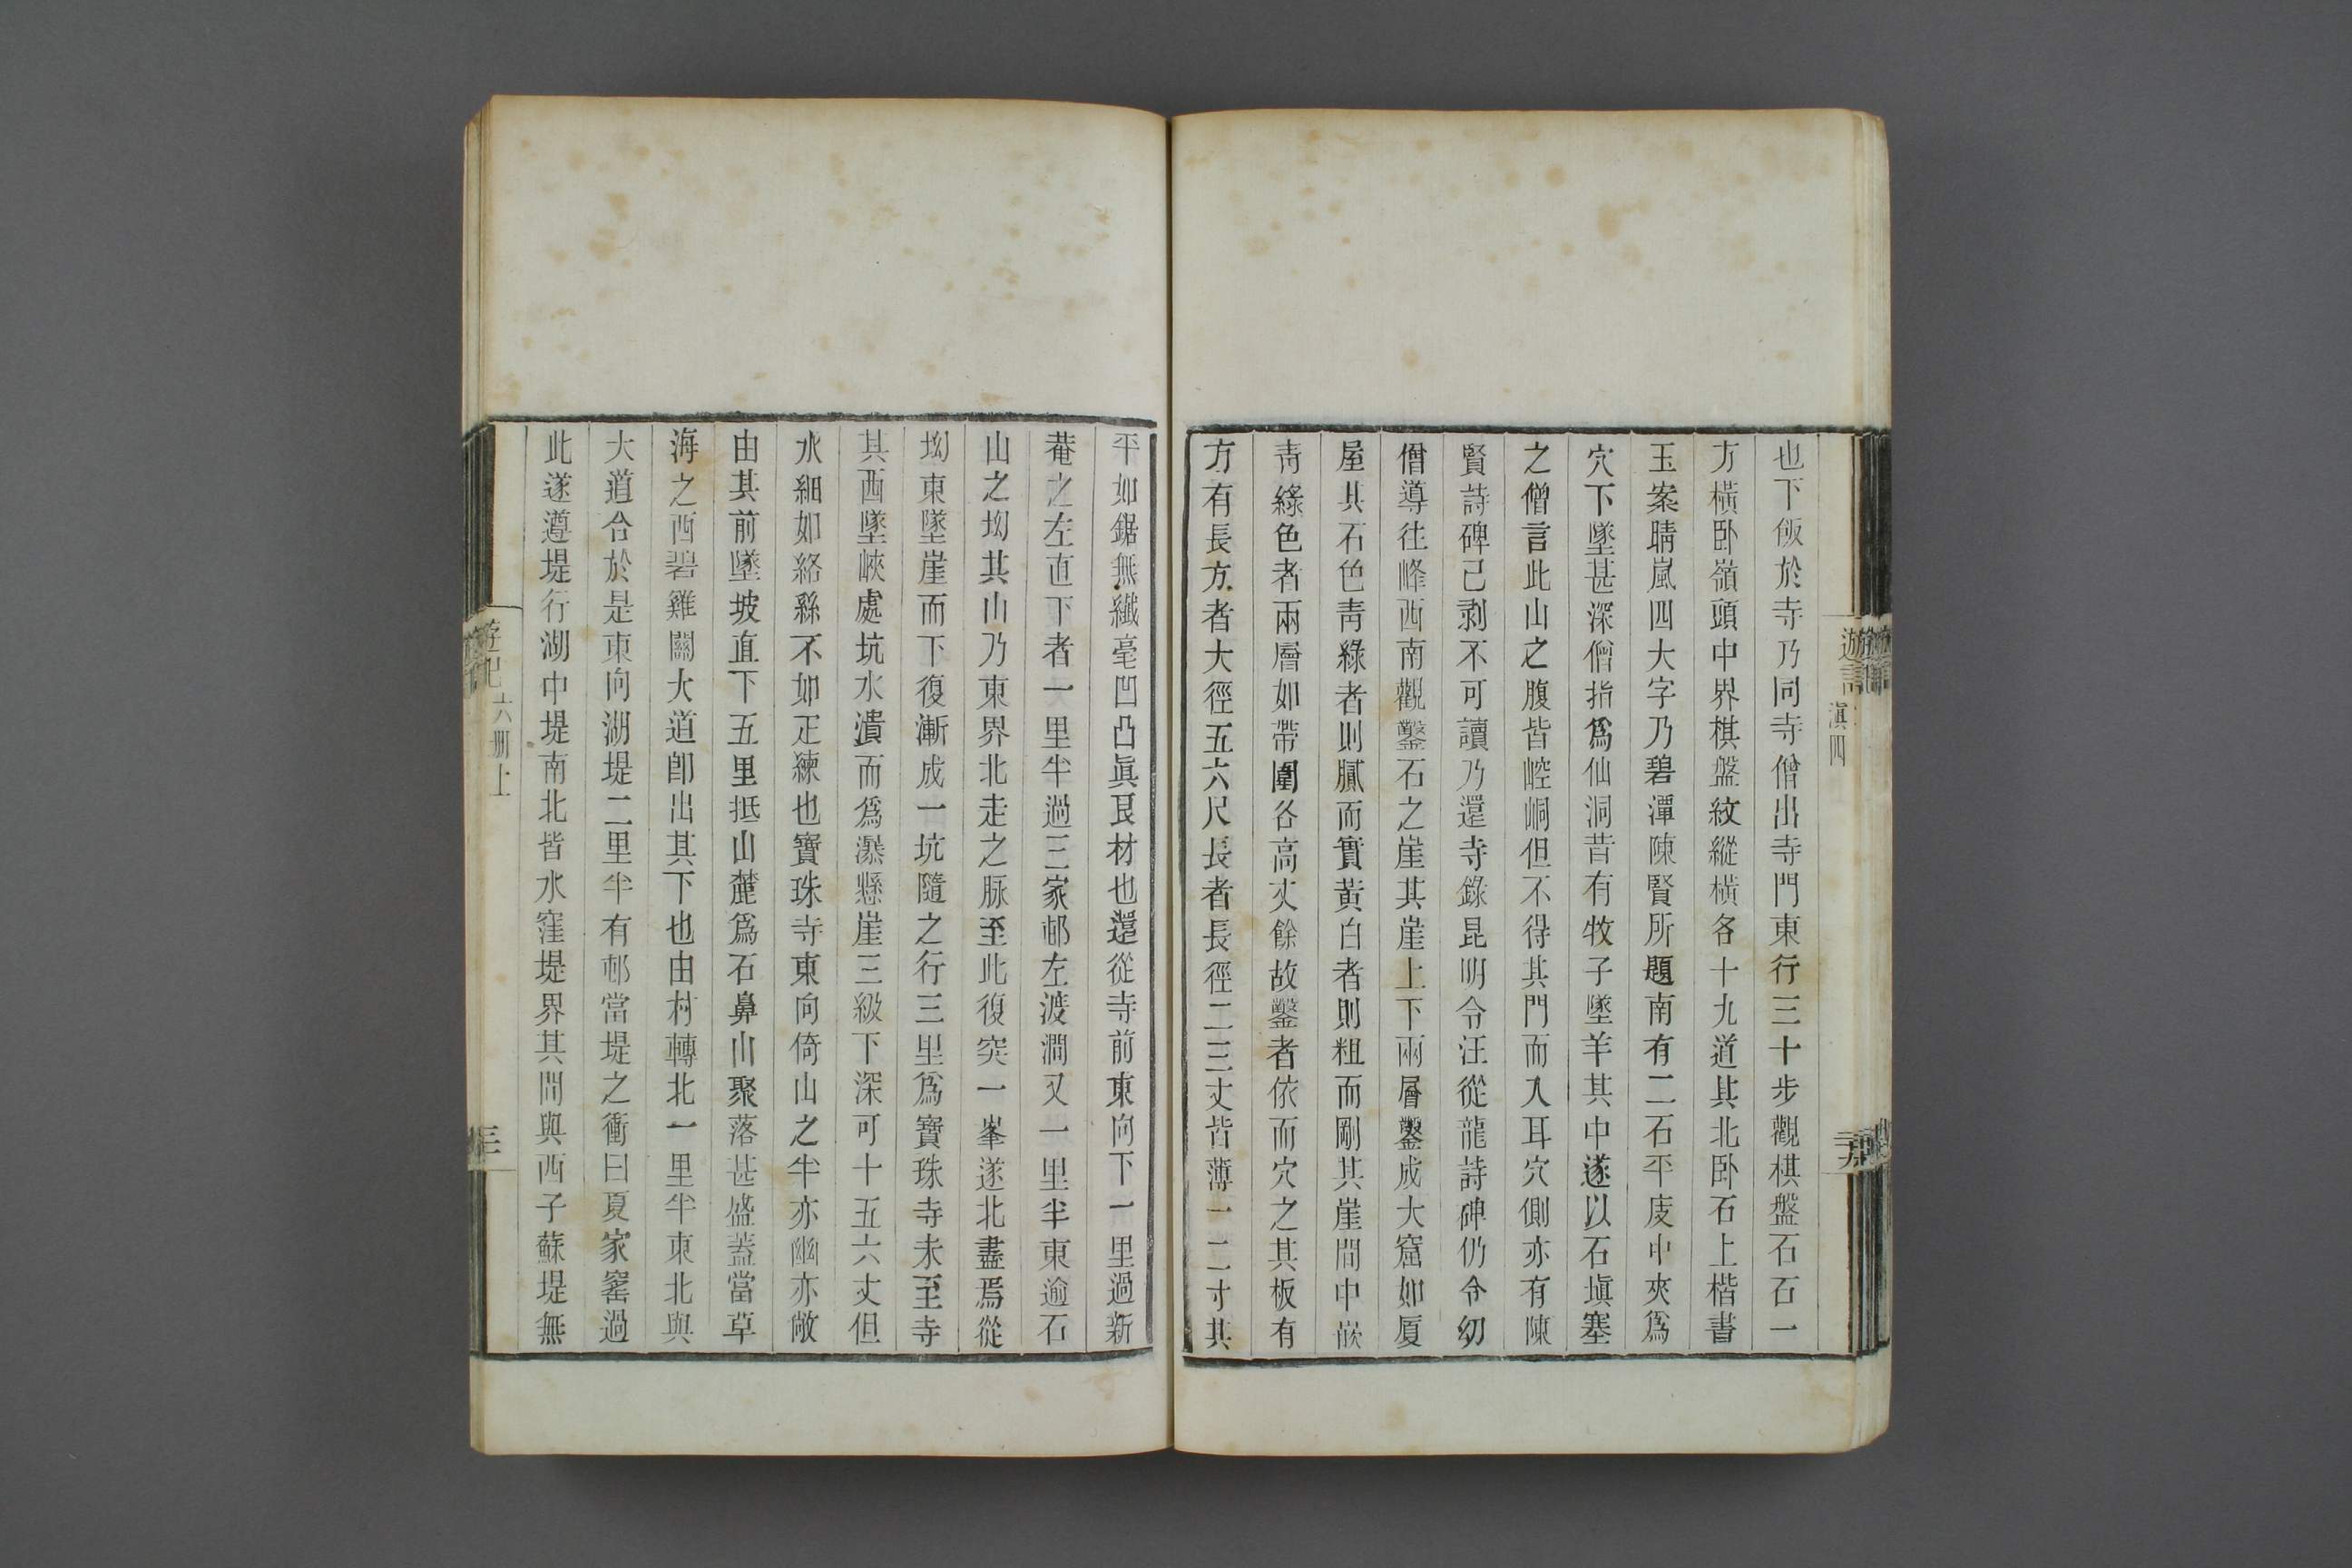 也下飯於寺乃同寺僧出寺門東行三十步觀棋盤石石一
方橫臥嶺頭中界棋盤紋縱橫各十九道其北臥石上楷書
玉案晴嵐四大字乃碧潭陳賢所題南有二石平庋中夾爲
穴下墜甚深僧指爲仙洞昔有牧子墜羊其中遂以石塡塞
之僧言此山之腹皆崆峒但不得其門而入耳穴側亦有陳
賢詩碑已剥不可讀乃還寺錄昆明令汪從龍詩碑仍令幼
僧導往峰西南觀鑿石之崖其崖上下兩層鑿成大窟如厦
屋其石色青綠者則膩而實黃白者則粗而剛其崖間中嵌
青綠色者兩層如帶圍各高丈餘故鑿者依而穴之其板有
方有長方者大徑五六尺長者長徑二三丈皆薄一二寸其
遊記
滇四
平如鋸無纖毫凹凸眞良材也還從寺前東向下一里過新
菴之左直下者一里半過三家邨左渡澗又一里半東逾石
山之坳其山乃東界北走之脉至此復突一峯遂北盡焉從
坳東墜崖而下復漸成一坑隨之行三里爲寶珠寺未至寺
其西墜峽處坑水潰而爲瀑懸崖三級下深可十五六丈但
水細如絡絲不如疋練也寶珠寺東向倚山之半亦幽亦敞
由其前墜坡直下五里抵山麓爲石鼻山聚落甚盛蓋當草
海之西碧雞關大道卽出其下也由村轉北一里半東北與
大道合於是東向湖堤二里半有邨當堤之衝曰夏家窰過
此遂遵堤行湖中堤南北皆水窪堤界其間與西子蘇堤無
遊記
六册上